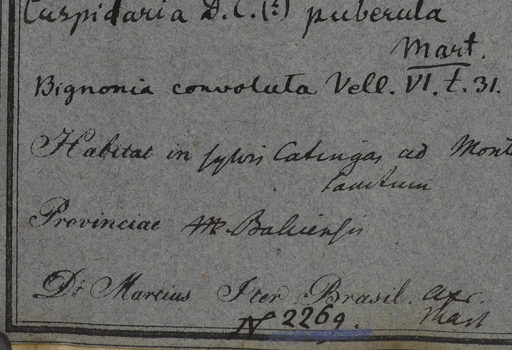 Cuspidaria D.C.(?) puberula
Mart.
Bignonia convoluta Vell. VI. t. 31.
Habitat in sylvis Catingas ad Mont
Sanctum
Provinciae Bahiensis
Dr Martius Iter Brasil.
Mart
N 2269.